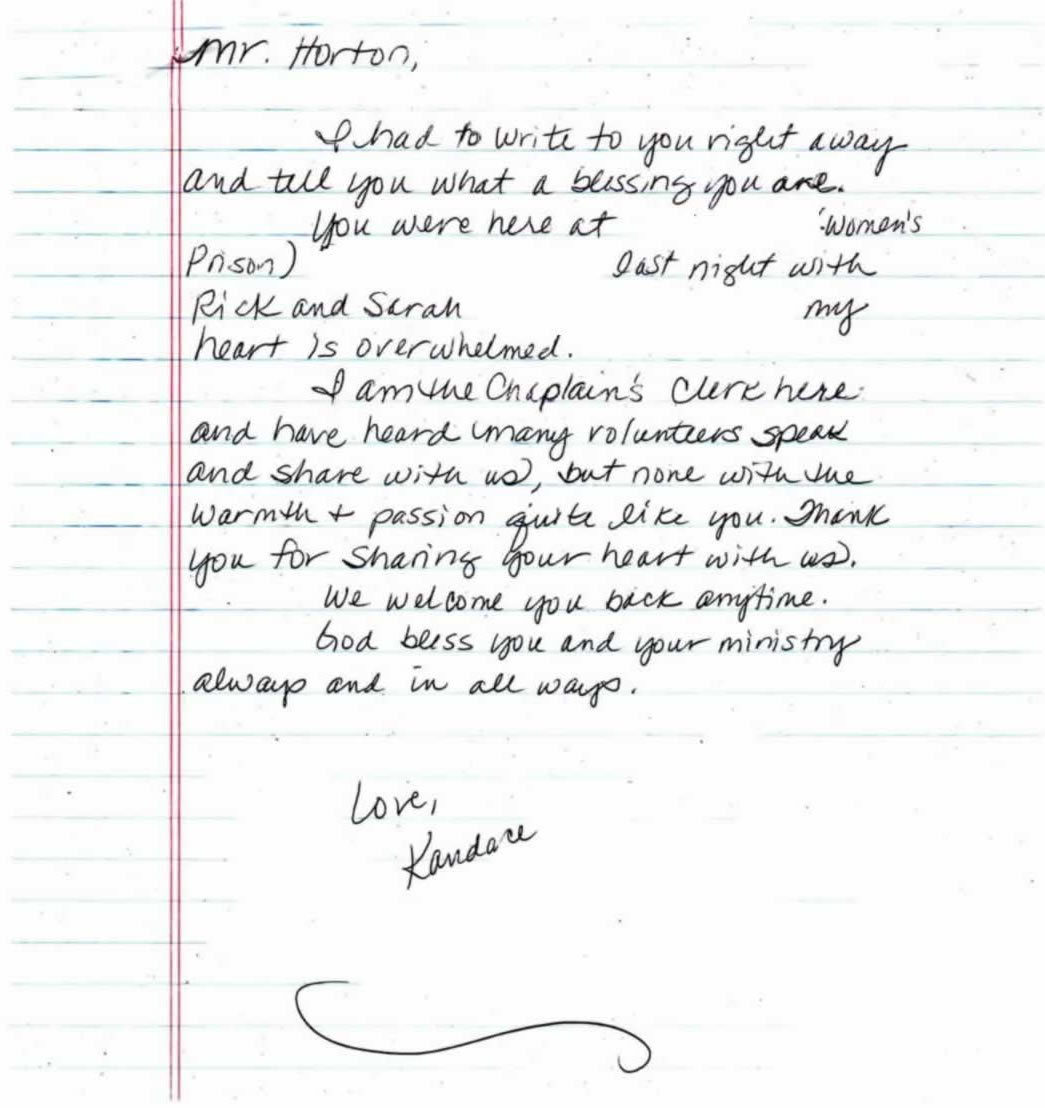 Mr. Horton,
I had to write to you right away
and tell you what a blessing you are.
You were here at Women's
Prison) last night with
Rick and Sarah my
heart is overwhelmed.
I am the Chaplain's Clerk here
and have heard many volunteers speak
and share with us, but none with the
warmth + passion quite like you. Thank
you for sharing your heart with us.
We welcome you back anytime.
God bless you and your ministry
always and in all ways.
Love,
Kandace